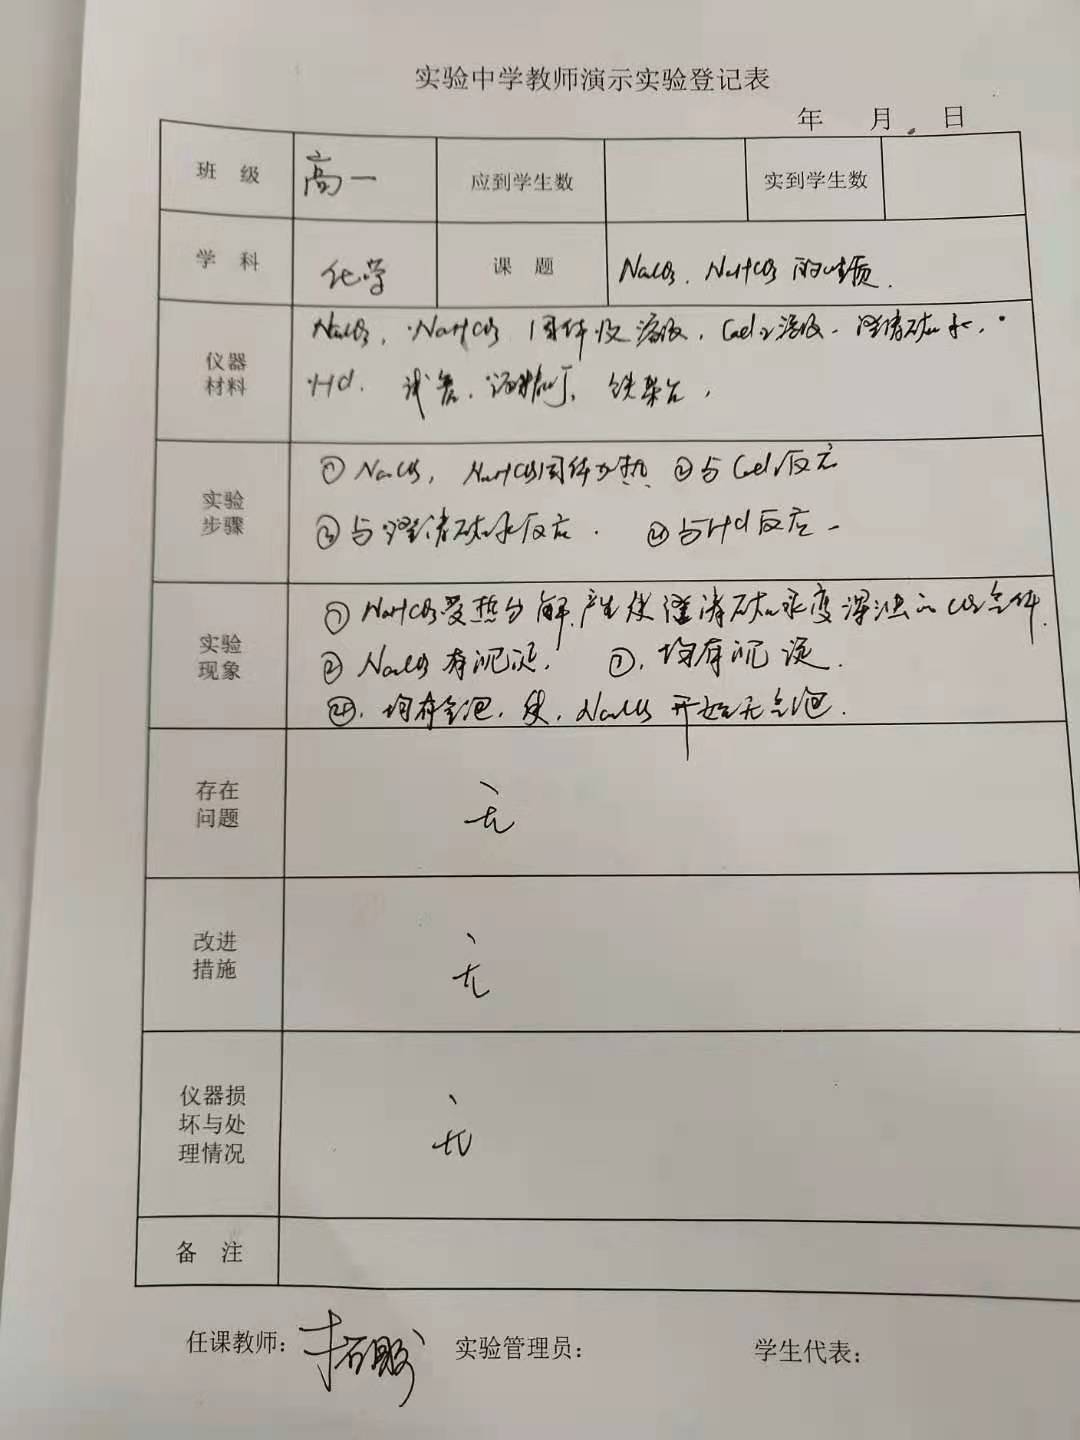 实验中学教师演示实验登记表
年 月 日
班 级 高一 应到学生数 实到学生数
学 科 化学 课 题 Na₂CO₃、NaHCO₃ 的性质.
仪器材料
Na₂CO₃, NaHCO₃ 固体及溶液, CaCl₂溶液. 澄清石灰水,
HCl. 试管. 酒精灯, 铁架台,
实验步骤
① Na₂CO₃, NaHCO₃固体加热 ②与CaCl₂反应
③与澄清石灰水反应. ④与HCl反应
实验现象
① NaHCO₃受热分解,产生使澄清石灰水变浑浊的CO₂气体.
② Na₂CO₃有沉淀, ③, 均有沉淀.
④, 均有气泡, 但, Na₂CO₃ 开始无气泡.
存在问题
无
改进措施
无
仪器损坏与处理情况
无
备 注
任课教师: 实验管理员: 学生代表: